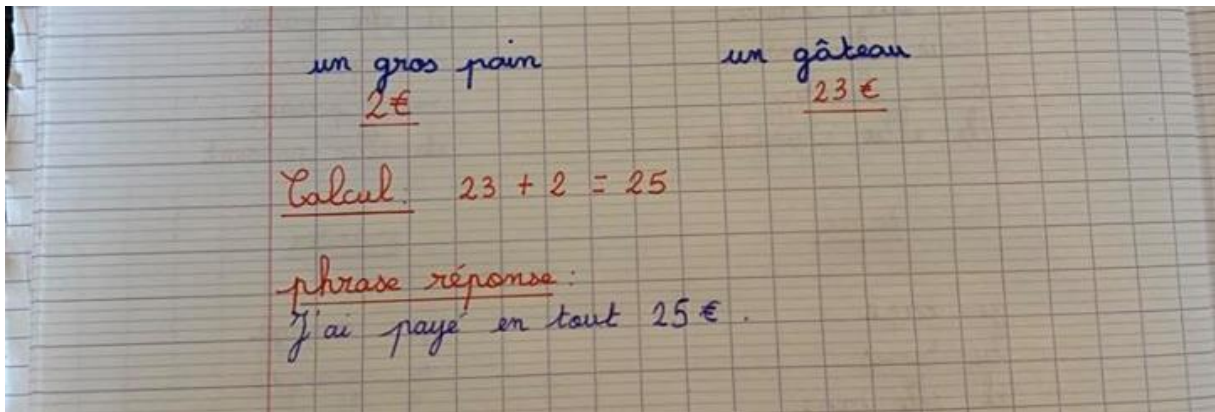 un gros pain un gâteau
2€ 23 €
Calcul: 23 + 2 = 25
phrase réponse:
J'ai payé en tout 25 €.